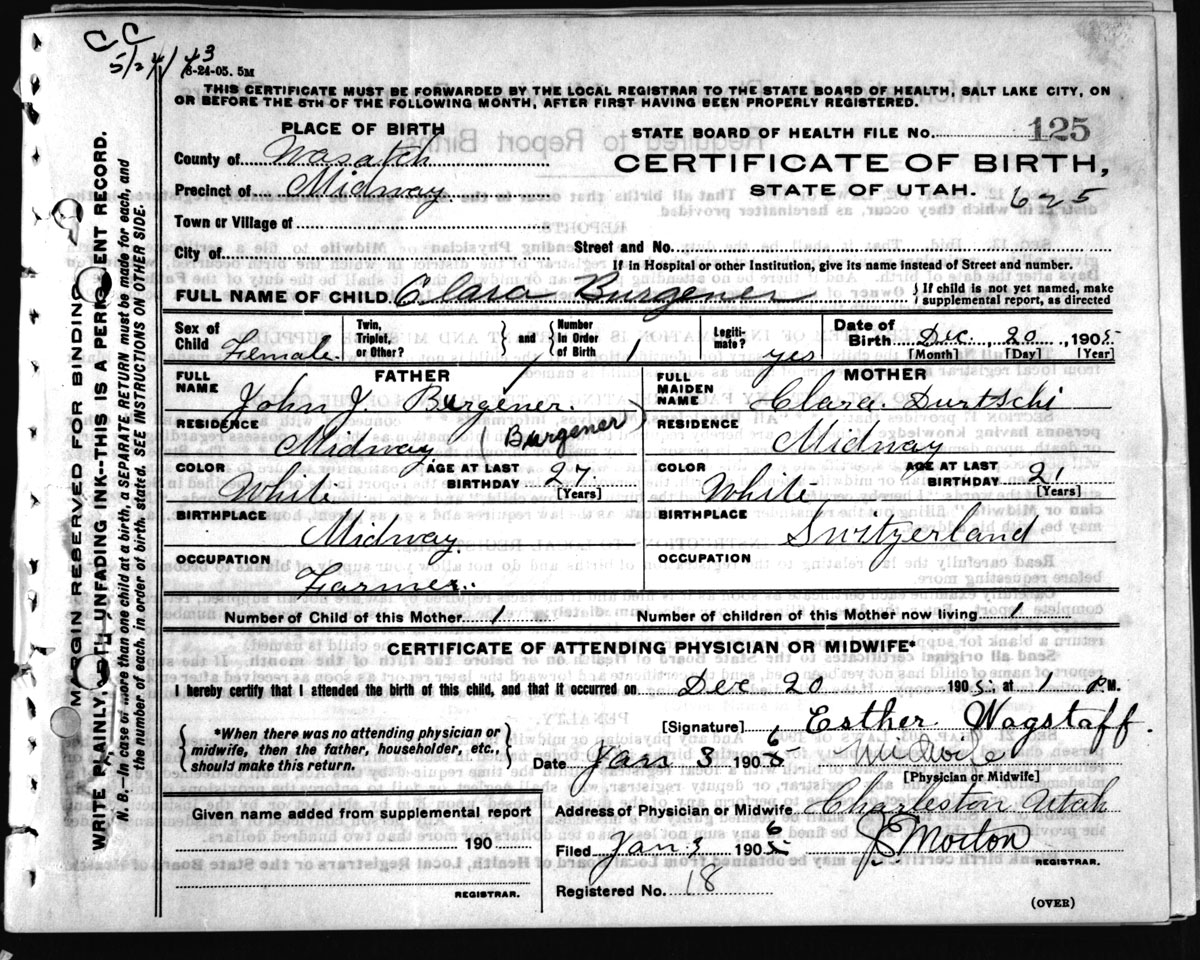 CC
5/24/43
8-24-05. 5M
THIS CERTIFICATE MUST BE FORWARDED BY THE LOCAL REGISTRAR TO THE STATE BOARD OF HEALTH, SALT LAKE CITY, ON
OR BEFORE THE 5TH OF THE FOLLOWING MONTH, AFTER FIRST HAVING BEEN PROPERLY REGISTERED.
PLACE OF BIRTH
STATE BOARD OF HEALTH FILE No. 125
County of Wasatch
CERTIFICATE OF BIRTH,
Precinct of Midway
STATE OF UTAH. 625
Town or Village of
City of Street and No.
If in Hospital or other Institution, give its name instead of Street and number.
FULL NAME OF CHILD. Clara Burgener { If child is not yet named, make supplemental report, as directed
Sex of Child Female Twin, Triplet, or Other? } and { Number in Order of Birth 1 Legiti-mate? yes Date of Birth Dec. 20, 1905
[Month] [Day] [Year]
FATHER
MOTHER
FULL NAME John J. Burgener.
FULL MAIDEN NAME Clara Durtschi
RESIDENCE Midway (Burgener)
RESIDENCE Midway
COLOR White AGE AT LAST BIRTHDAY 27 [Years]
COLOR White AGE AT LAST BIRTHDAY 21 [Years]
BIRTHPLACE Midway.
BIRTHPLACE Switzerland
OCCUPATION Farmer.
OCCUPATION
Number of Child of this Mother 1 Number of children of this Mother now living 1
CERTIFICATE OF ATTENDING PHYSICIAN OR MIDWIFE*
I hereby certify that I attended the birth of this child, and that it occurred on Dec 20 1905 at 1 P M.
{ *When there was no attending physician or midwife, then the father, householder, etc., should make this return. }
[Signature] Esther Wagstaff.
Date Jan 3 1906 Midwife
[Physician or Midwife]
Given name added from supplemental report
Address of Physician or Midwife Charleston Utah
190
Filed Jan 3 1906 J E Morton
REGISTRAR.
REGISTRAR.
Registered No. 18
(OVER)
MARGIN RESERVED FOR BINDING
WRITE PLAINLY, WITH UNFADING INK--THIS IS A PERMANENT RECORD.
N. B.--In case of more than one child at a birth, a SEPARATE RETURN must be made for each, and
the number of each, in order of birth, stated. SEE INSTRUCTIONS ON OTHER SIDE.